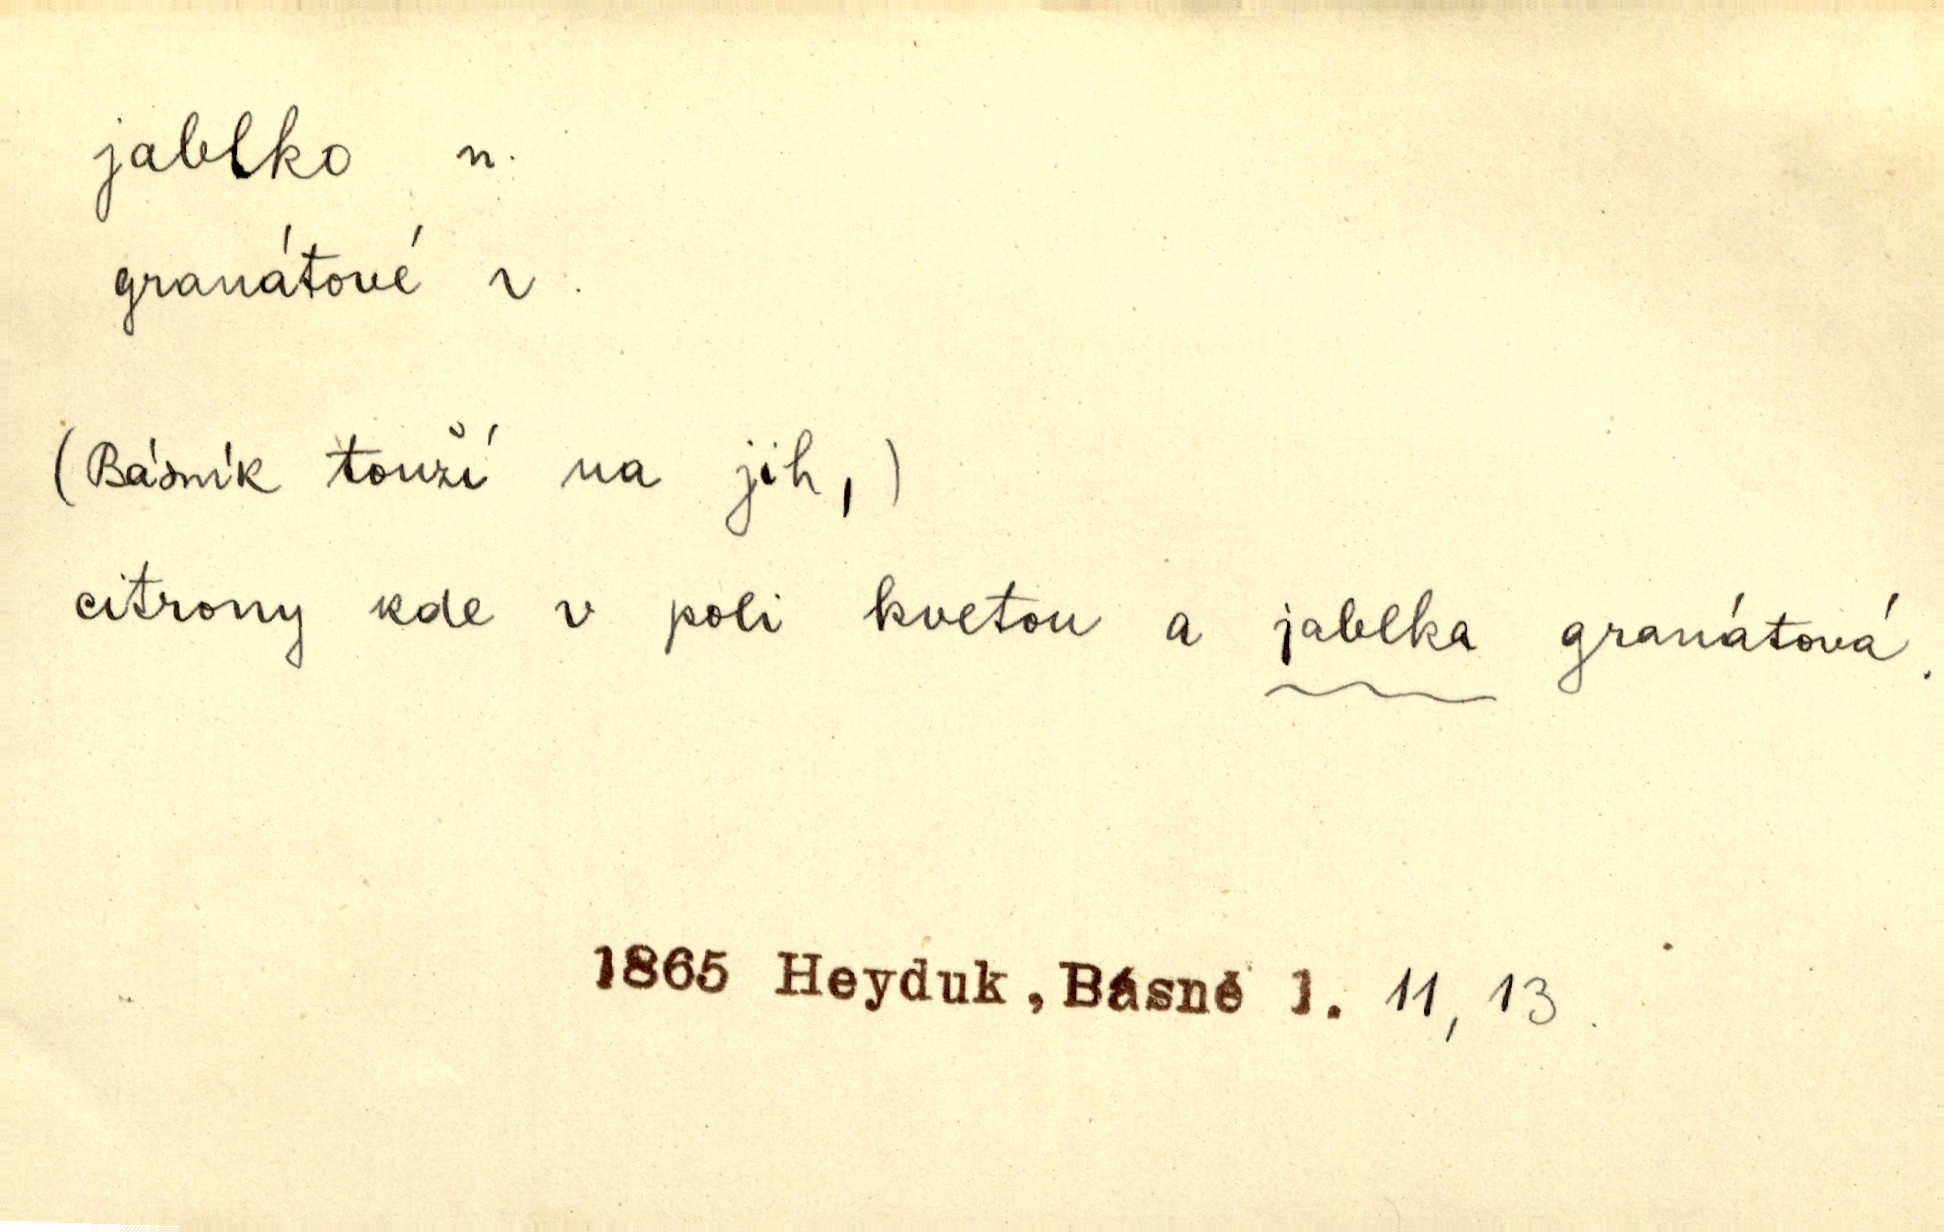 jablko n.
granátové v.
(Básník touží na jih,)
citrony kde v poli kvetou a jablka granátová.
1865 Heyduk, Básně 1. 11, 13.